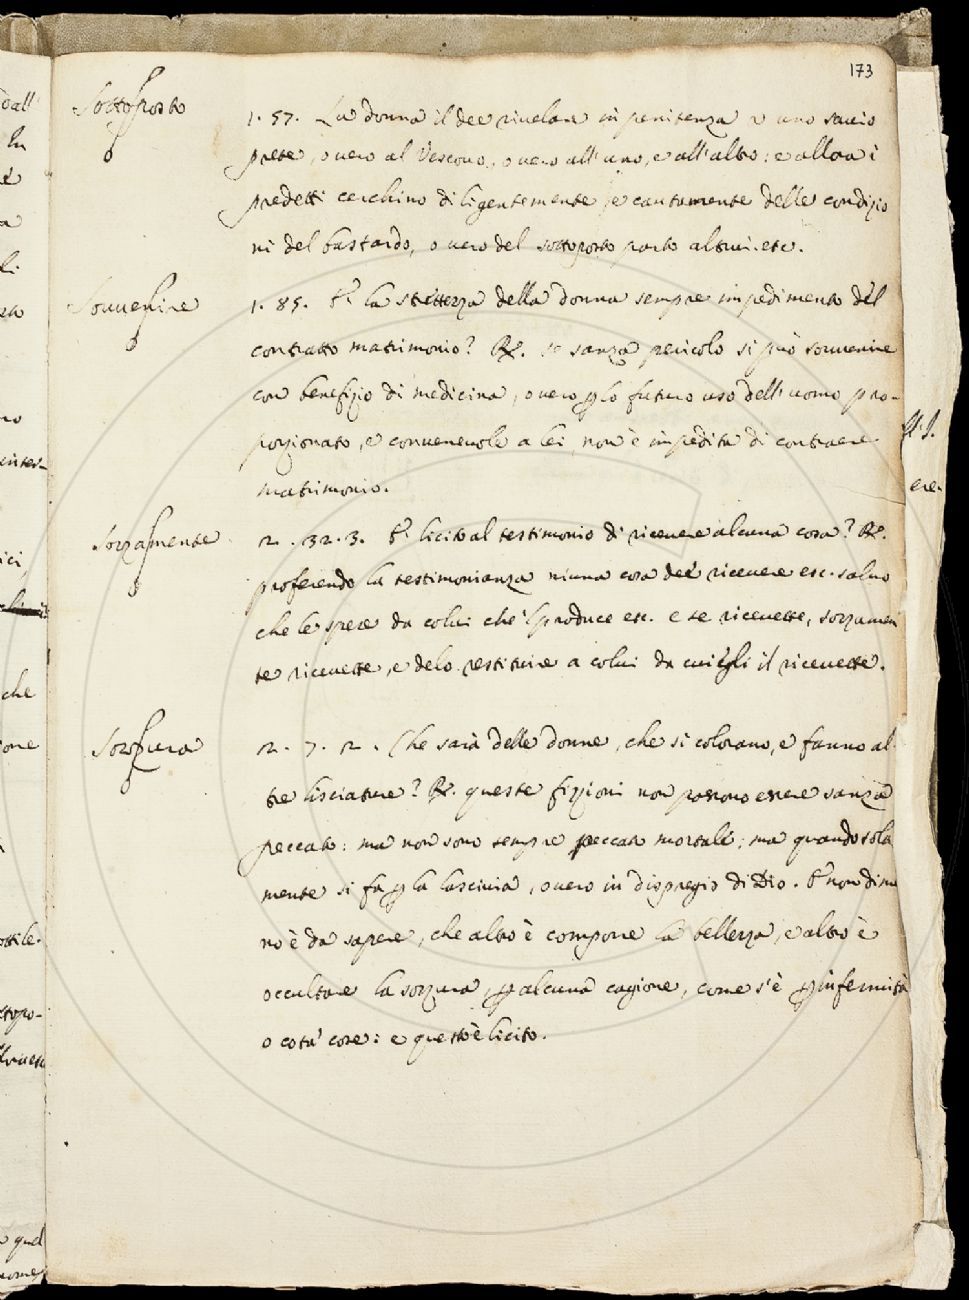 173
Sottoposto
1. 57. La donna il dee rivelare in penitenza a uno savio
prete, overo al Vescovo, overo all'uno, e all'altro: e allora i
predetti cerchino diligentemente, e cautamente delle condizio
ni del bastardo, overo del sottoposto parto altrui. etc.
Sovvenire
1. 85. È la strettezza della donna sempre impedimento del
contratto matrimonio? R. se sanza pericolo si può sovvenire
con benefizio di medicina, overo p lo futuro uso dell'uomo pro-
porzionato, e convenevole a lei, non è impedita di contraere
matrimonio.
Sozzamente
2. 32. 3. È licito al testimonio di ricevere alcuna cosa? R.
proferendo la testimonianza niuna cosa dee ricevere etc. salvo
che le spese da colui che 'l produce etc. e se ricevette, sozzamen
te ricevette, e delo restituire a colui da cui egli il ricevette.
Sozzura
2. 7. 2. Che sarà delle donne, che si colorano, e fanno al
tre lisciature? R. queste fizzioni non possono essere sanza
peccato: ma non sono sempre peccato mortale; ma quando sola
mente si fa p la lascivia, overo in dispregio di Dio. E nondime
no è da sapere, che altro è componere la bellezza, e altro è
occultare la sozzura, p alcuna cagione, come s'è p infermità
o cota' cose: e questo è licito.